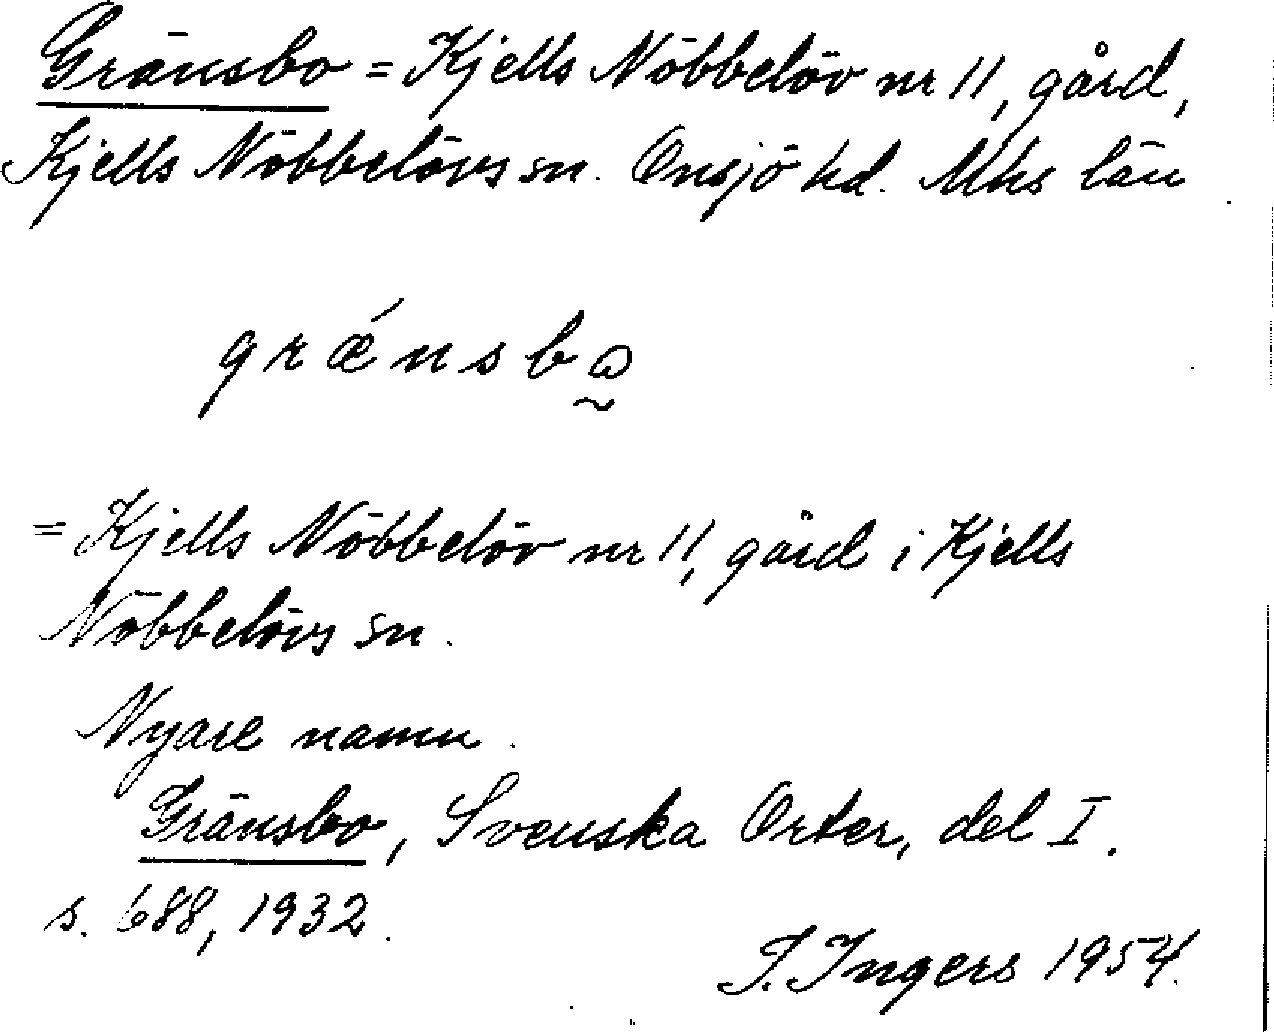 Gränsbo = Kjells Nöbbelöv nr 11, gård,
Kjells Nöbbelövs sn. Onsjö hd. Mhs län
grǽnsbω̰
= Kjells Nöbbelöv nr 11, gård i Kjells
Nöbbelövs sn.
Nyare namn.
Gränsbo, Svenska Orter, del I.
s. 688, 1932.
I. Ingers 1954.